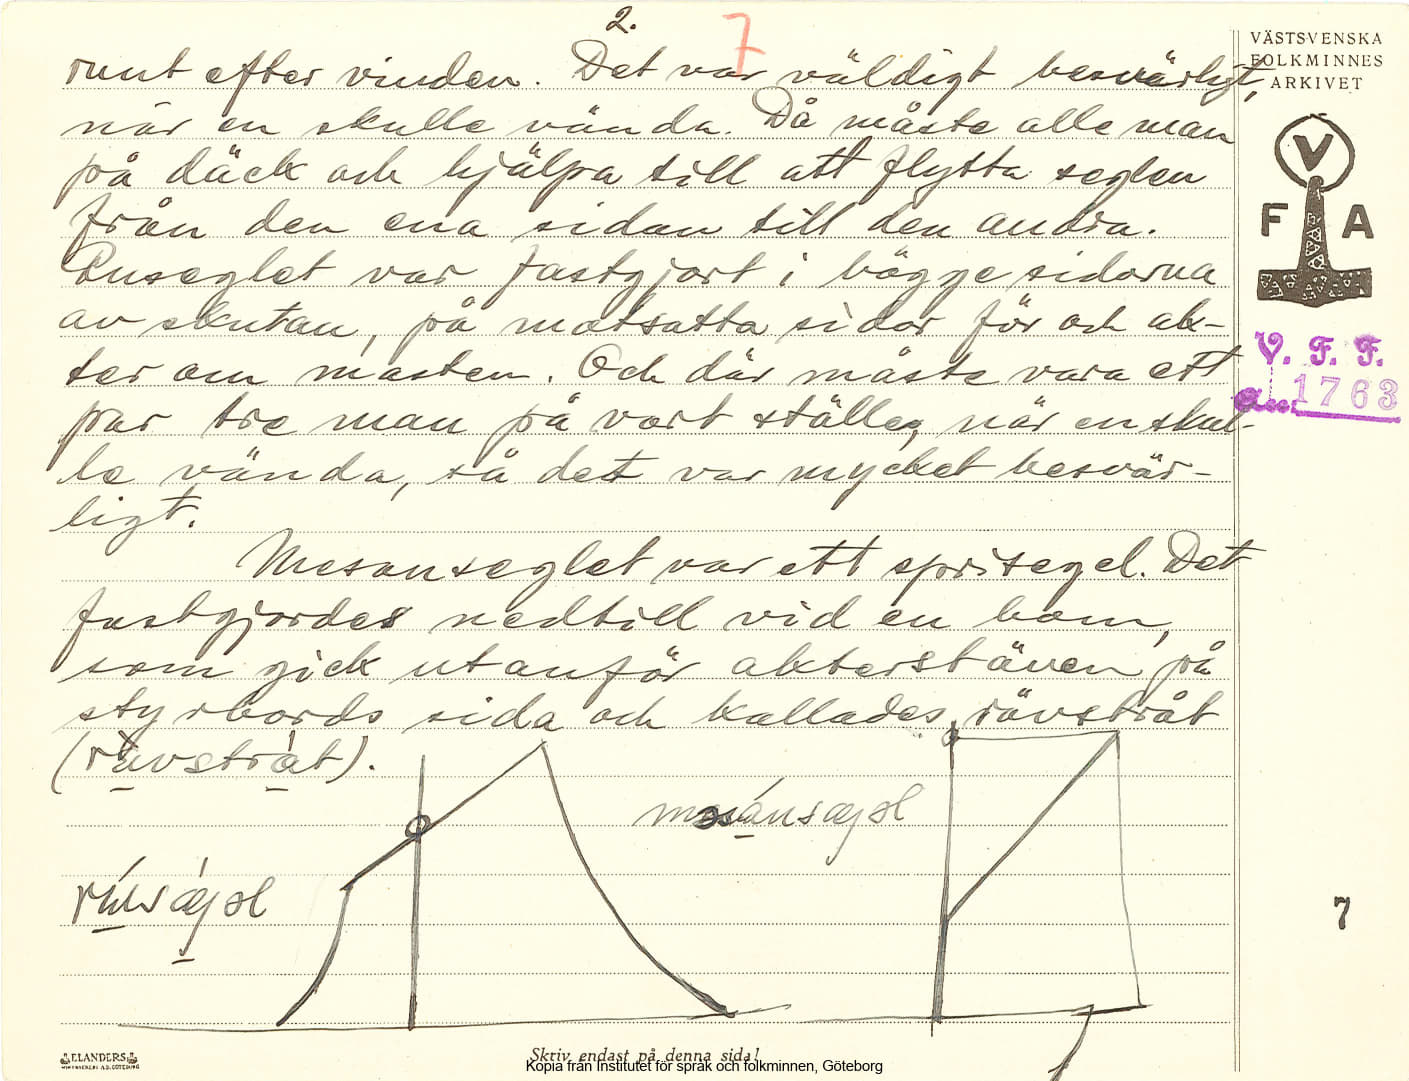 2.
7
runt efter vinden. Det var väldigt besvärligt,
när en skulle vända. Då måste alle man
på däck och hjälpa till att flytta seglen
från den ena sidan till den andra.
Ruseglet var fastgjort i bägge sidorna
av skutan, på motsatta sidor för och ak-
ter om masten. Och där måste vara ett
par tre man på vart ställe, när en skul-
le vända, så det var mycket besvär-
ligt.
Mesanseglet var ett sprisegel. Det
fastgjordes nedtill vid en bom,
som gick utanför akterstäven på
styrbords sida och kallades rävstråt
(rävstråt).
VÄSTSVENSKA
FOLKMINNES
ARKIVET
V
F A
V. F. F.
1763
7
ELANDERS
Skriv endast på denna sida!
Kopia från Institutet för språk och folkminnen, Göteborg